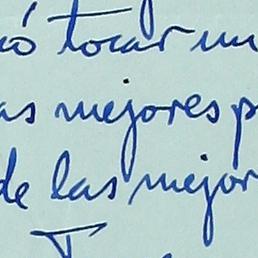 ó tocar un
as mejores p
de las mejor
T